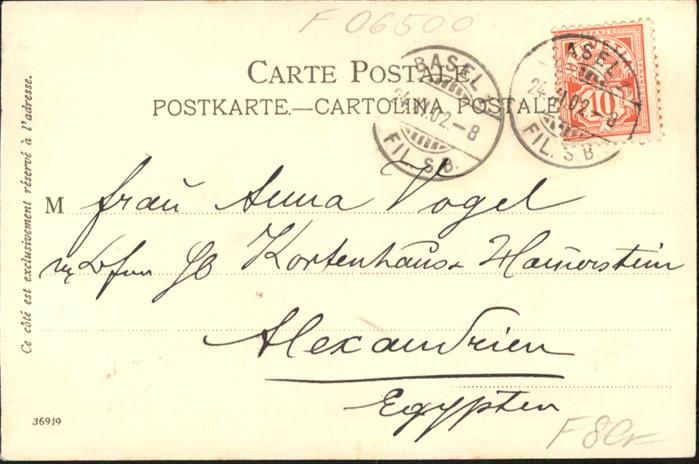 F 06500
CARTE POSTALE
POSTKARTE.—CARTOLINA POSTALE
BASEL
02.-8
FIL. S.B.
BASEL
24. 02.-8
FIL. S.B
FRANCO
10
Ce côté est exclusivement réservé à l'adresse.
M frau Anna Vogel
Kortenhaus & Hamerstein
Alexandrien
Egypten
36919